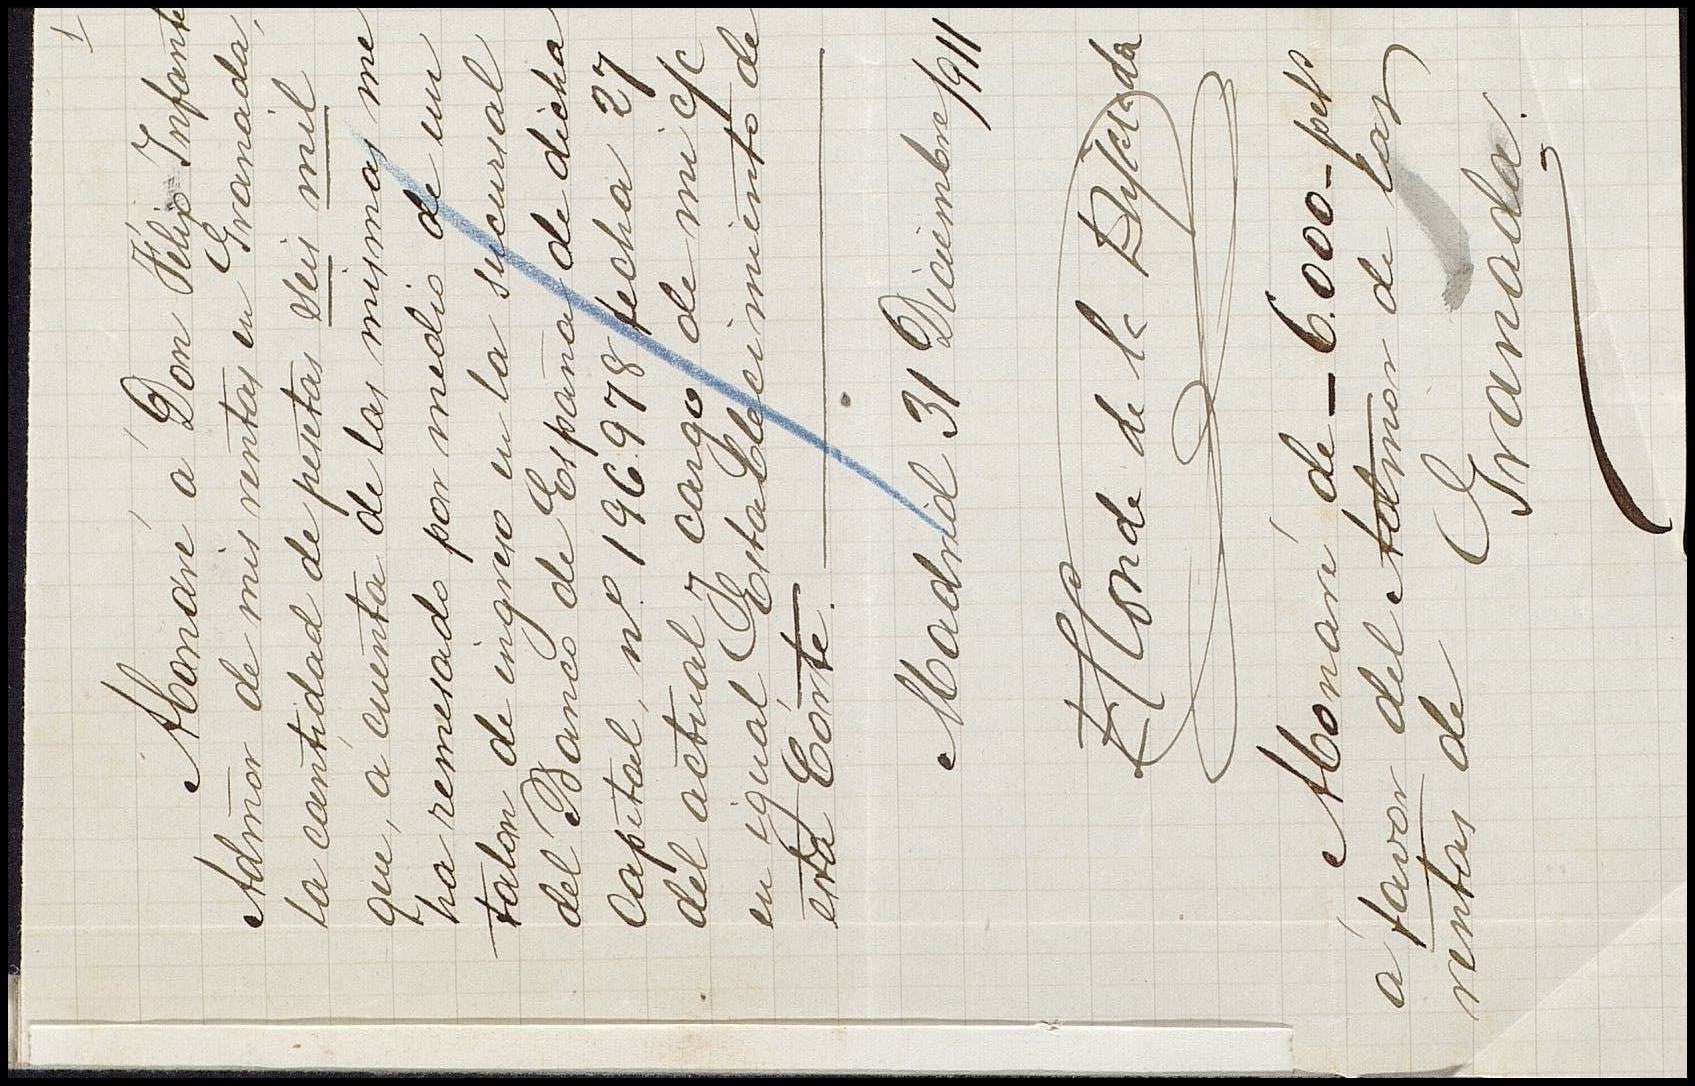 1
Abonaré á Don Felip Infante
Admor de mis rentas en Granada,
la cantidad de pesetas seis mil
que, á cuenta de las mismas me
ha remesado por medio de un
talon de ingreso en la sucursal
del Banco de España de dicha
Capital, nº 196.978 fecha 27
del actual y cargo de mi c/c
en igual Establecimiento de
esta Córte.
Madrid 31 Diciembre/911
El Conde de la
Abonaré de - 6.000 - pets
á favor del Admor de las
rentas de Granada.